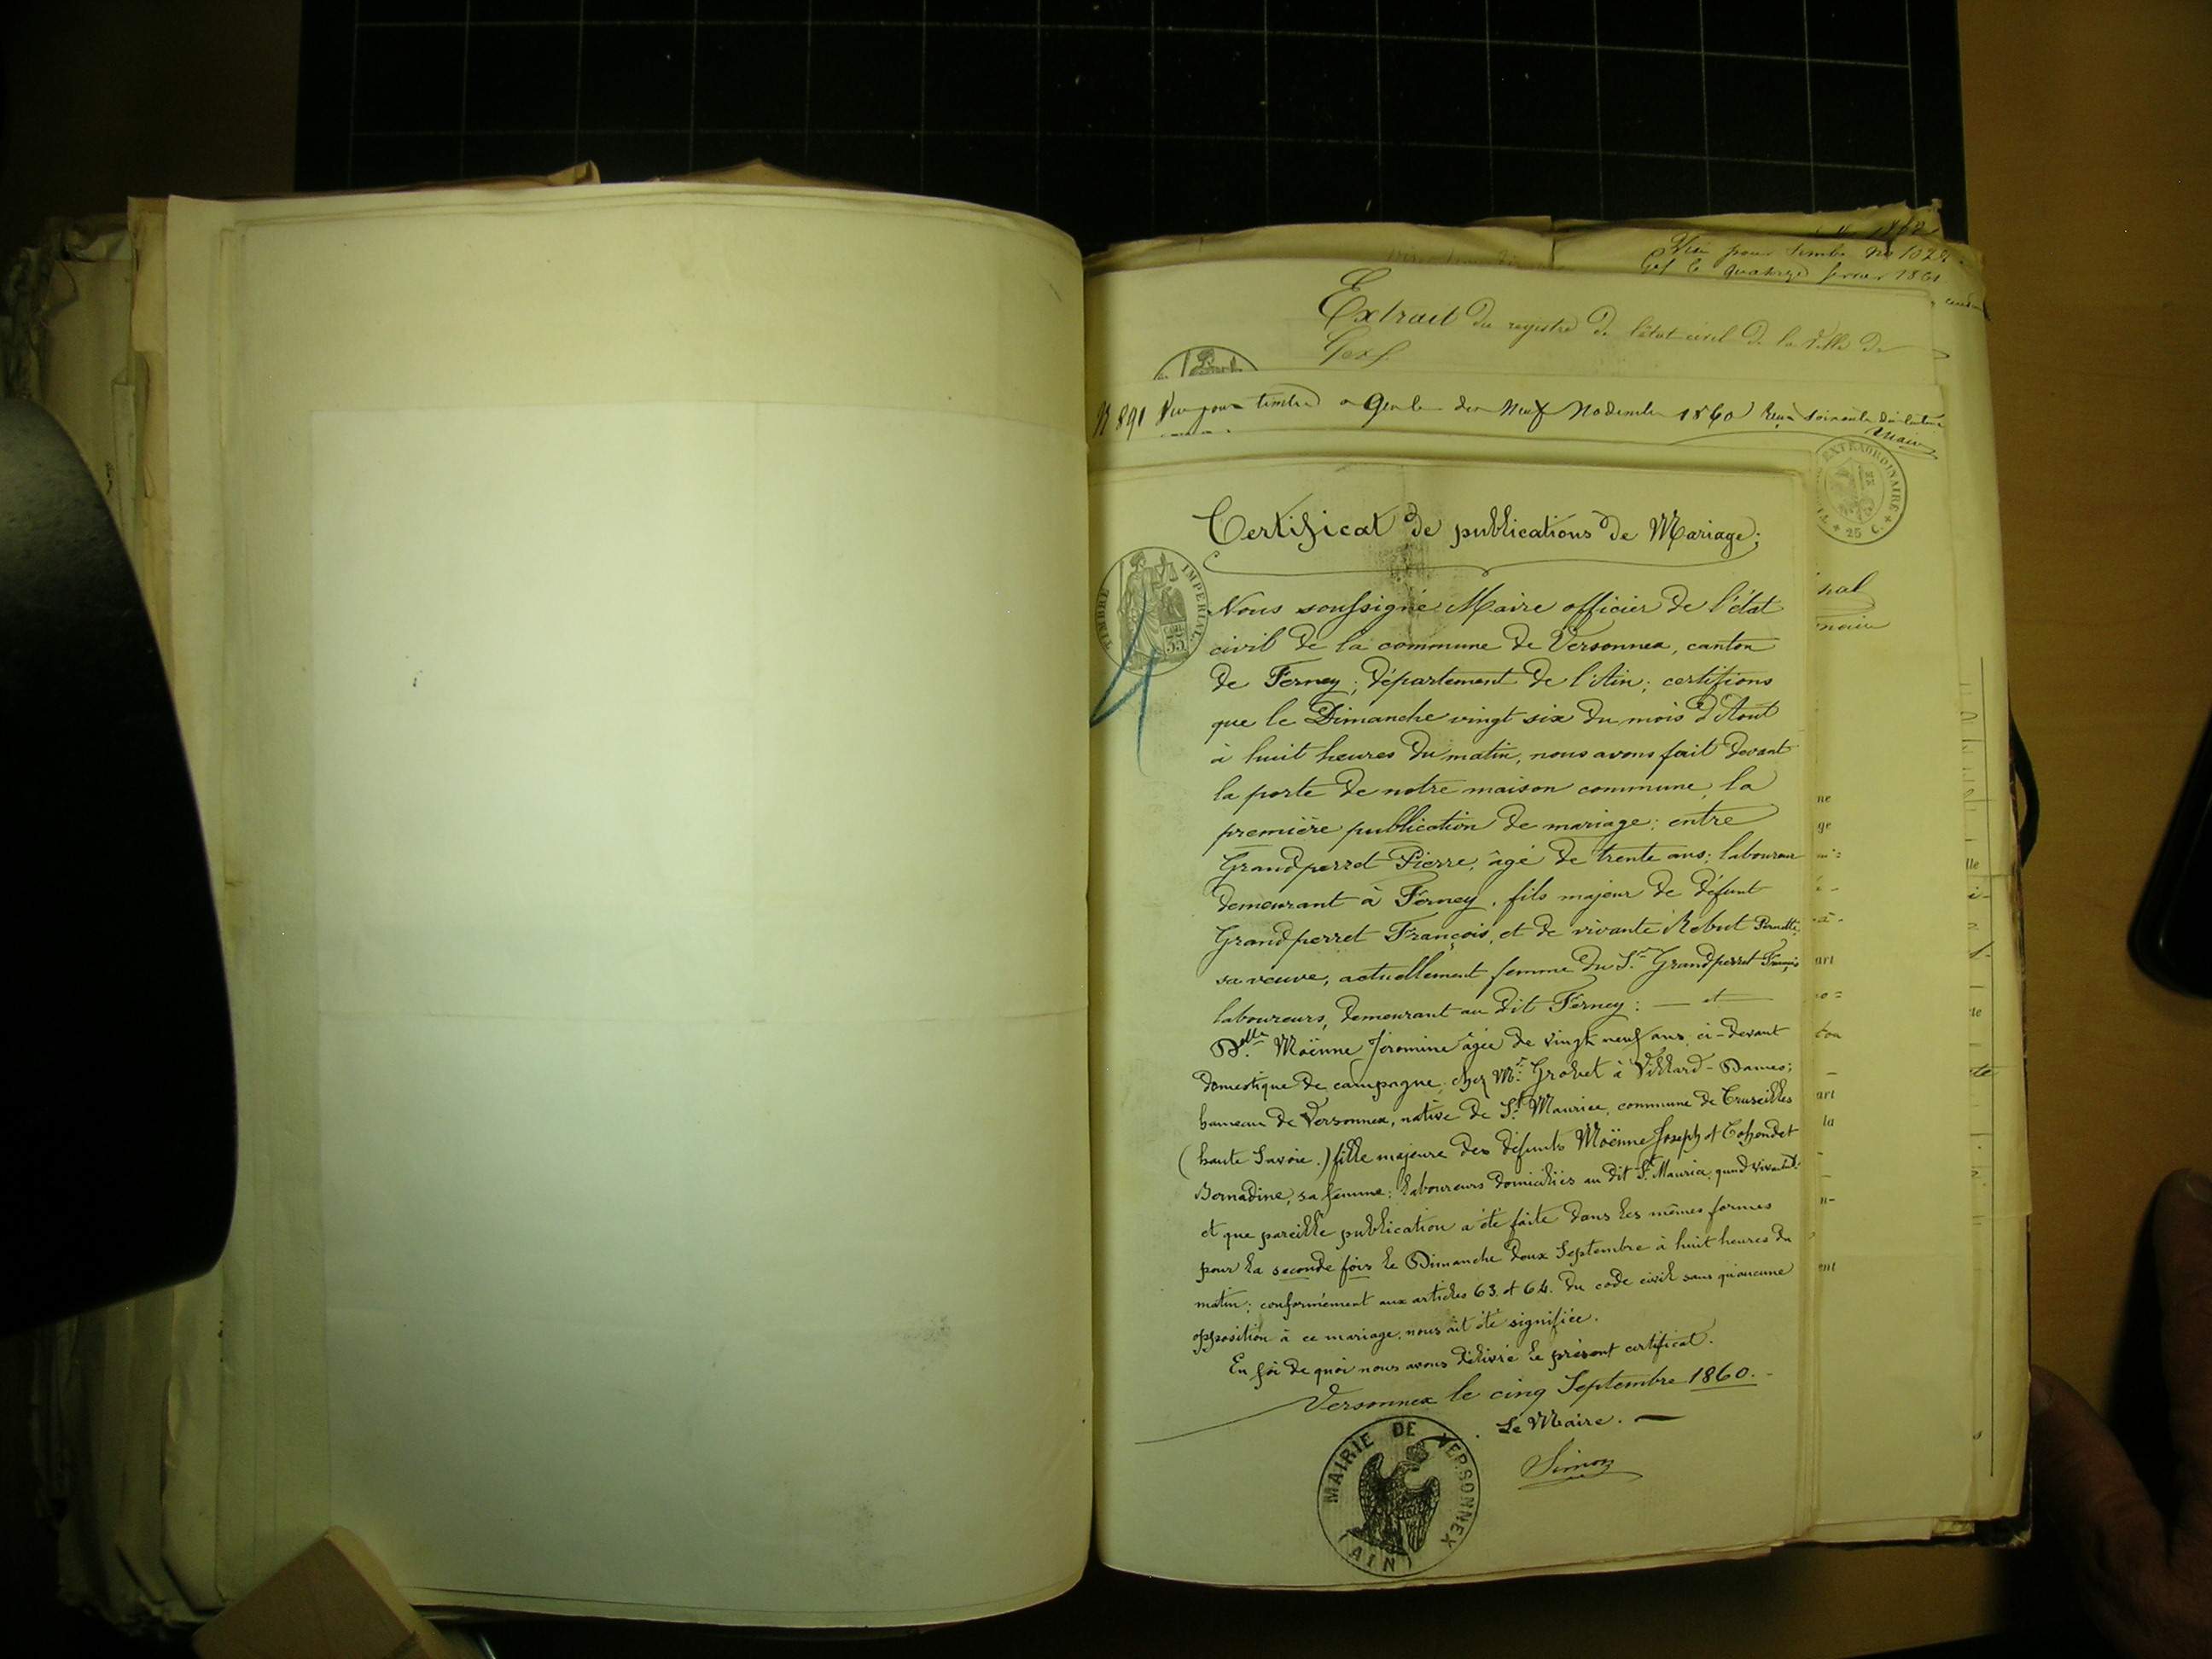 Vu pour timbre No 102
Gex le quatorze fevrier 1861
Extrait du registre de l'état civil de la Ville de
Gex
N 891 Vu pour timbre a Gex le neuf Novembre 1860
EXTRAORDINAIRE
25 C.
TIMBRE IMPERIAL
35
Certificat de publications de Mariage;
Nous soussigné Maire officier de l'état
civil de la commune de Versonnex, canton
de Ferney; département de l'Ain; certifions
que le Dimanche vingt six du mois d'Aout
à huit heures du matin, nous avons fait devant
la porte de notre maison commune, la
première publication de mariage; entre
Grandperret Pierre, âgé de trente ans; laboureur
demeurant à Ferney, fils majeur de défunt
Grandperret François, et de vivante Rebut Pernette,
sa veuve, actuellement femme du Sr. Grandperret François
laboureurs, demeurant au dit Ferney: — et —
Delle. Moënne Jeromine âgée de vingt neuf ans, ci-devant
domestique de campagne, chez Mr. Grobet à Villard-Dames;
hameau de Versonnex, native de St. Maurice, commune de Cruseilles
(haute Savoie.) fille majeure des défunts Moënne Joseph et
Bernadine, sa femme; laboureurs domiciliés au dit St. Maurice, quand vivaient.
et que pareille publication a été faite dans les mêmes formes
pour la seconde fois le Dimanche deux Septembre à huit heures du
matin; conformément aux articles 63. et 64. du code civil sans qu'aucune
opposition à ce mariage, nous ait été signifiée.
En foi de quoi nous avons délivré le présent certificat.
Versonnex le cinq Septembre 1860.
Le Maire.
Simon
MAIRIE DE VERSONNEX
(AIN)